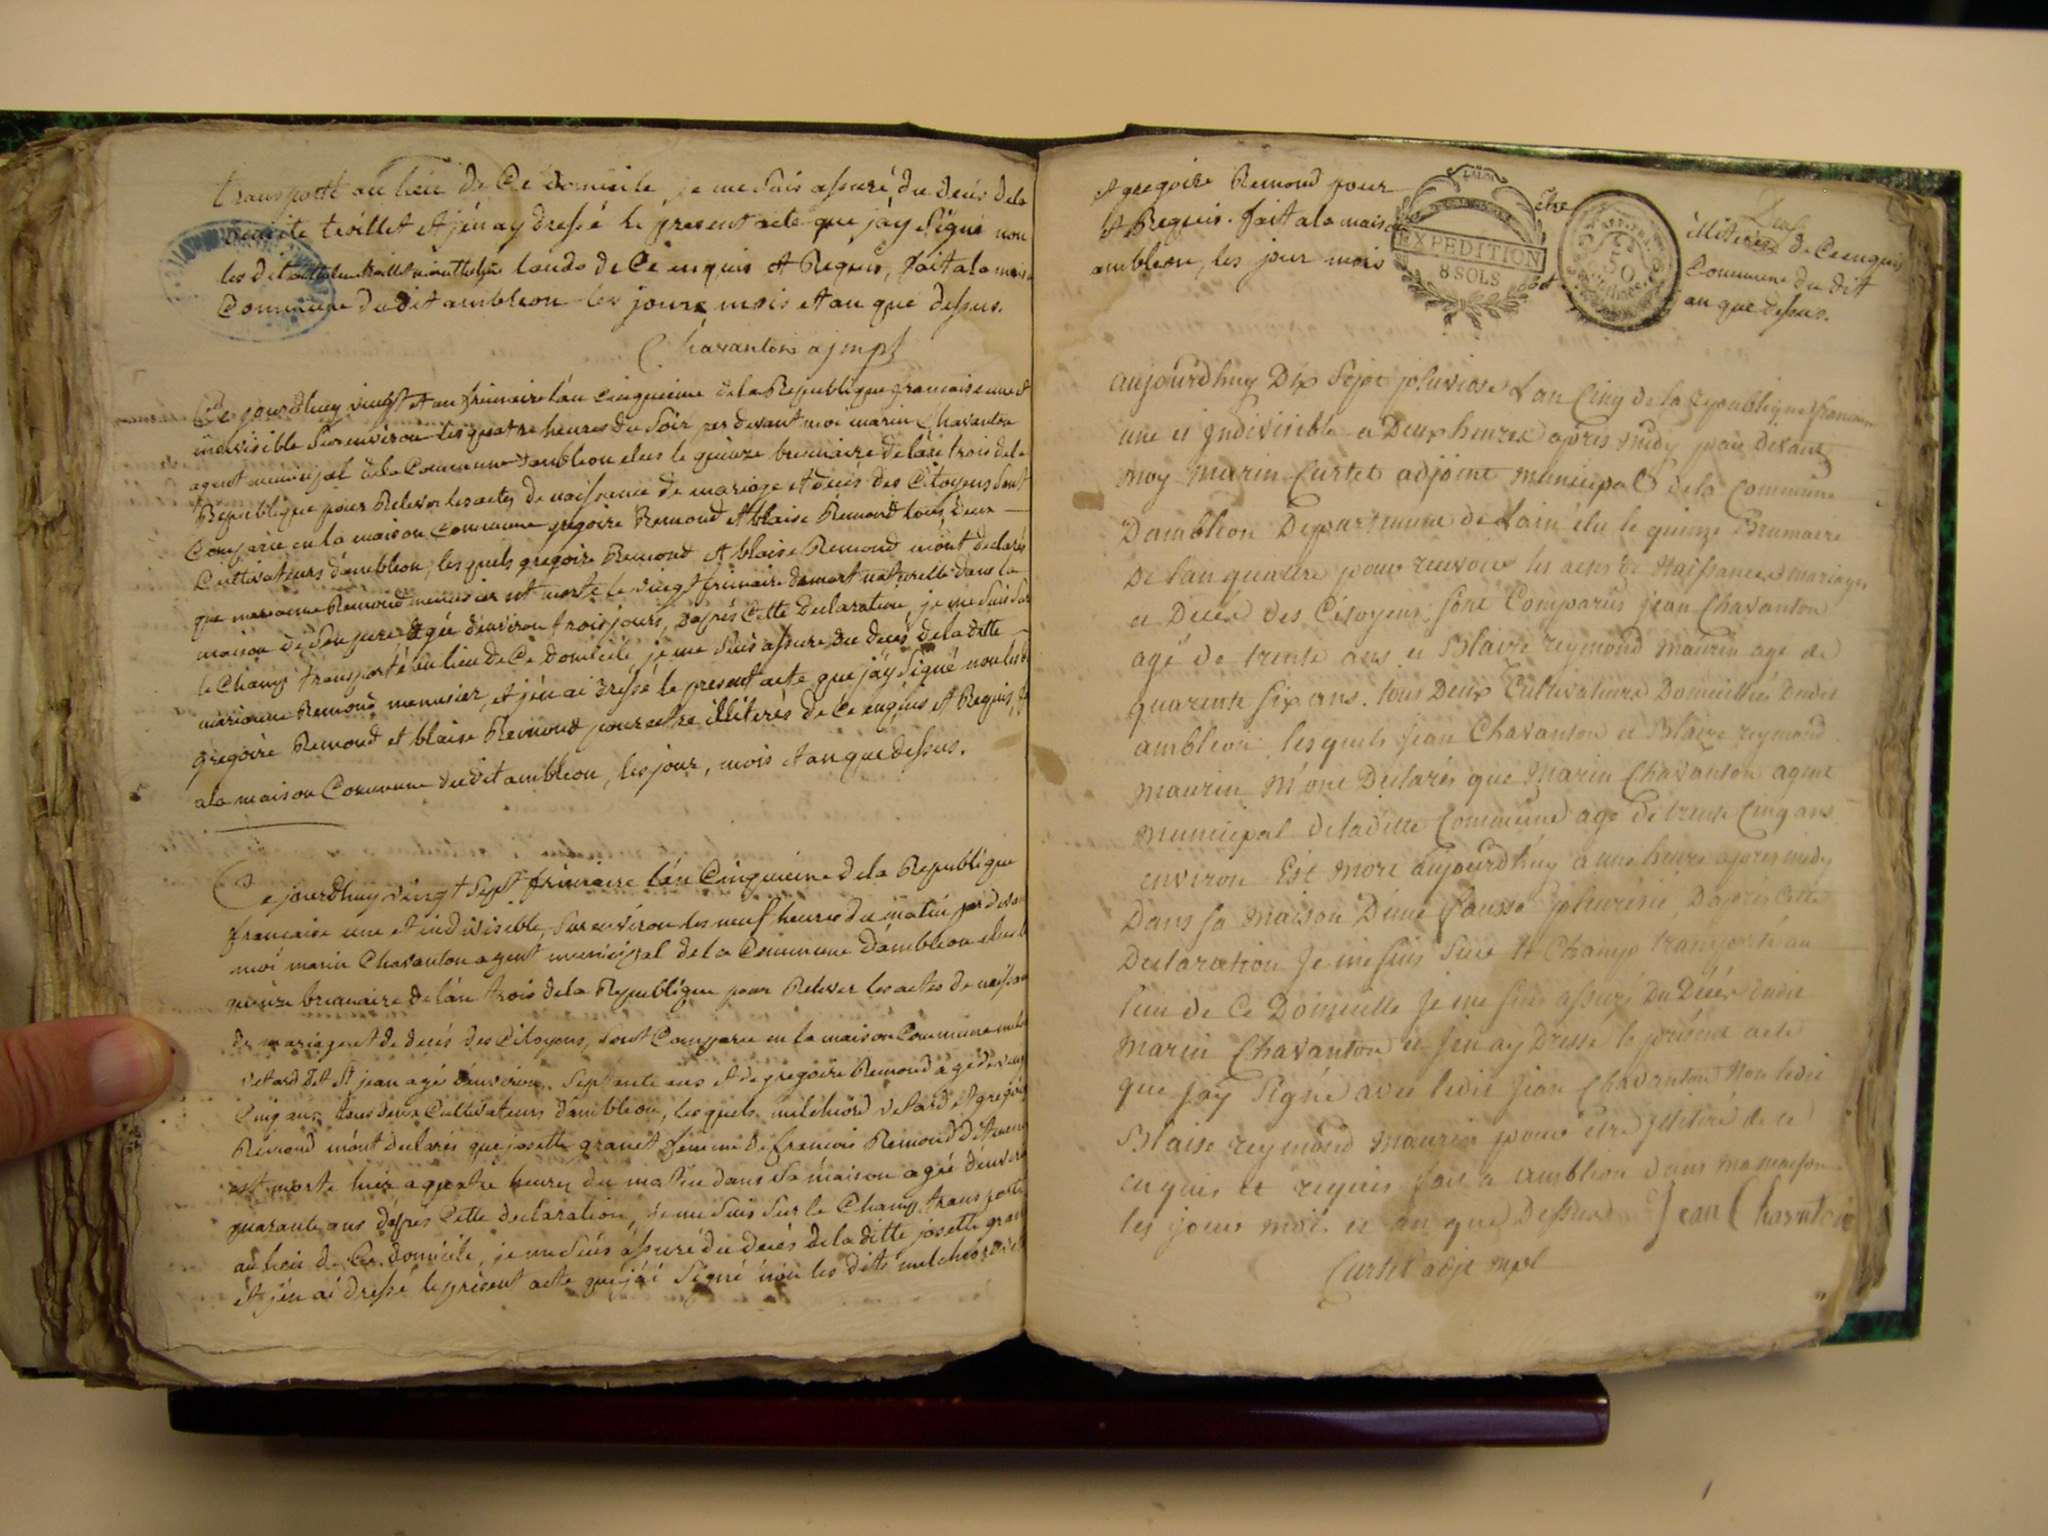 transporté au lieu de Ce domicile je me suis assuré du decés dela
trollet et j'en ay dressé le present acte que j'ay signé non
les dits de Ce enquis et Requis, fait a la maison
Commune dudit ambleon les jours mois et an que dessus.
Chavanton a j mpl
Ce jourdhuy vingt et un frimaire l'an Cinquieme de la Republique francaise une et
indivisible sur environ les quatre heures du soir par devant moi marin Chavanton
agent municipal de la Commune d'ambleon eleu le quinze brumaire de l'an trois de la
Republique pour Relever les actes de naissance de mariage et decés des Citoyens sont
Comparu en la maison Commune gregoire Remond et blaise Remond tous deux
Cultivateurs d'ambleon, les quels gregoire Remond et blaise Remond m'ont declarés
que marianne Remond menusier est morte le vingt frimaire de mort naturelle dans la
maison de son pere agée d'environ trois jours, d'aprés Cette declaration, je me suis sur
le Champ transporté au lieu de Ce domicile je me suis assuré du decés de la ditte
marianne Remond menusier, et j'en ai dressé le present acte que j'ay signé non les
gregoire Remond et blaise Remond pour etre illiterés de Ce enquis et Requis,
a la maison Commune dudit ambleon, les jour, mois et an que dessus.
Ce jourdhuy vingt sept frimaire l'an Cinquieme de la Republique
francaise une et indivisible, sur environ les neuf heures du matin par devant
moi marin Chavanton agent municipal de la Commune d'ambleon eleu le
quinze brumaire de l'an trois de la Republique pour Relever les actes de naissance
de mariage et de decés des Citoyens, sont Comparu en la maison Commune
vetard dit St jean agé d'environ septante ans et de gregoire Remond agé de vingt
Cinq ans tous deux Cultivateurs d'ambleon, les quels melchiord vetard et gregoire
Remond m'ont declarés que josette granet femme de francois Remond dit
est morte hier a quatre heures du matin dans sa maison agée d'environ
quarante ans d'aprés Cette declaration, je me suis sur le Champ transporté
au lieu de Ce domicile, je me suis assuré du decés de la ditte josette granet
et j'en ai dressé le present acte que j'ai signé non les dits melchiord
et gregoire Remond pour etre illiterés de Ce enquis
et Requis. fait a la maison Commune du dit
ambleon, les jour mois et an que dessus.
EXPEDITION
8 SOLS
50
aujourdhuy Dix sept pluviose L'an Cinq de la Republique francaise
une et Indivisible a Deux heures apres midy par Devant
moy marin Curtet adjoint municipal de la Commune
Dambleon Departement de Lain élu le quinze Brumaire
De lan quatre pour recevoir les actes de Naissance mariages
et Decés des Citoyens, sont Comparus jean Chavanton
agé de trente ans et Blaise reymond maurin agé de
quarente six ans. tous Deux Cultivateurs Domiciliés Dudit
ambleon lesquels jean Chavanton et Blaise reymond
maurin M'ont Declarés que Marin Chavanton agent
municipal de la ditte Commune agé de trente Cinq ans
environ Est mort aujourdhuy a une heure apres midy
Dans sa maison D'une fausse pleuresie, D'apres Cette
Declaration Je me suis sur le Champ transporté au
lieu de Ce Domicille Je me suis assuré Du Décés dudit
Marin Chavanton et J'en ay Dressé le présent acte
que J'ay Signé avec ledit Jean Chavanton Non ledit
Blaise reymond maurin pour être Illitiré de ce
enquis et requis fait a ambleon dans ma maison
les jours mois et an que Dessus Jean Chavanton
Curtet adjt mpl